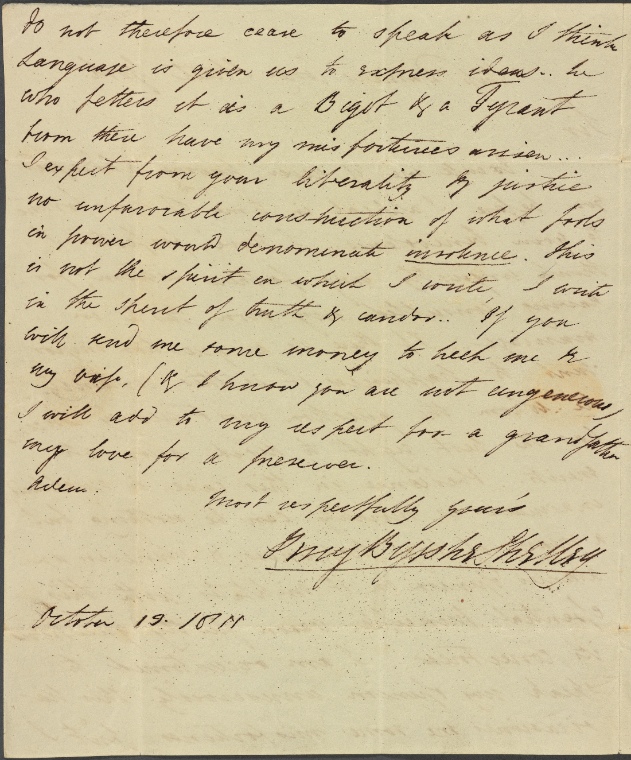 do not therefore cease to speak as I think
Language is given us to express ideas.. he
who fetters it is a Bigot & a Tyrant
from these have my misfortunes arisen...
I expect from your liberality & justice
no unfavorable construction of what fools
in power would denominate insolence. This
is not the spirit in which I write I write
in the spirit of truth & candor.. If you
will send me some money to help me &
my wife, (& I know you are not ungenerous)
I will add to my respect for a grandfather
my love for a preserver.
Adieu.
Most respectfully yours
Percy Bysshe Shelley
October 19. 1811